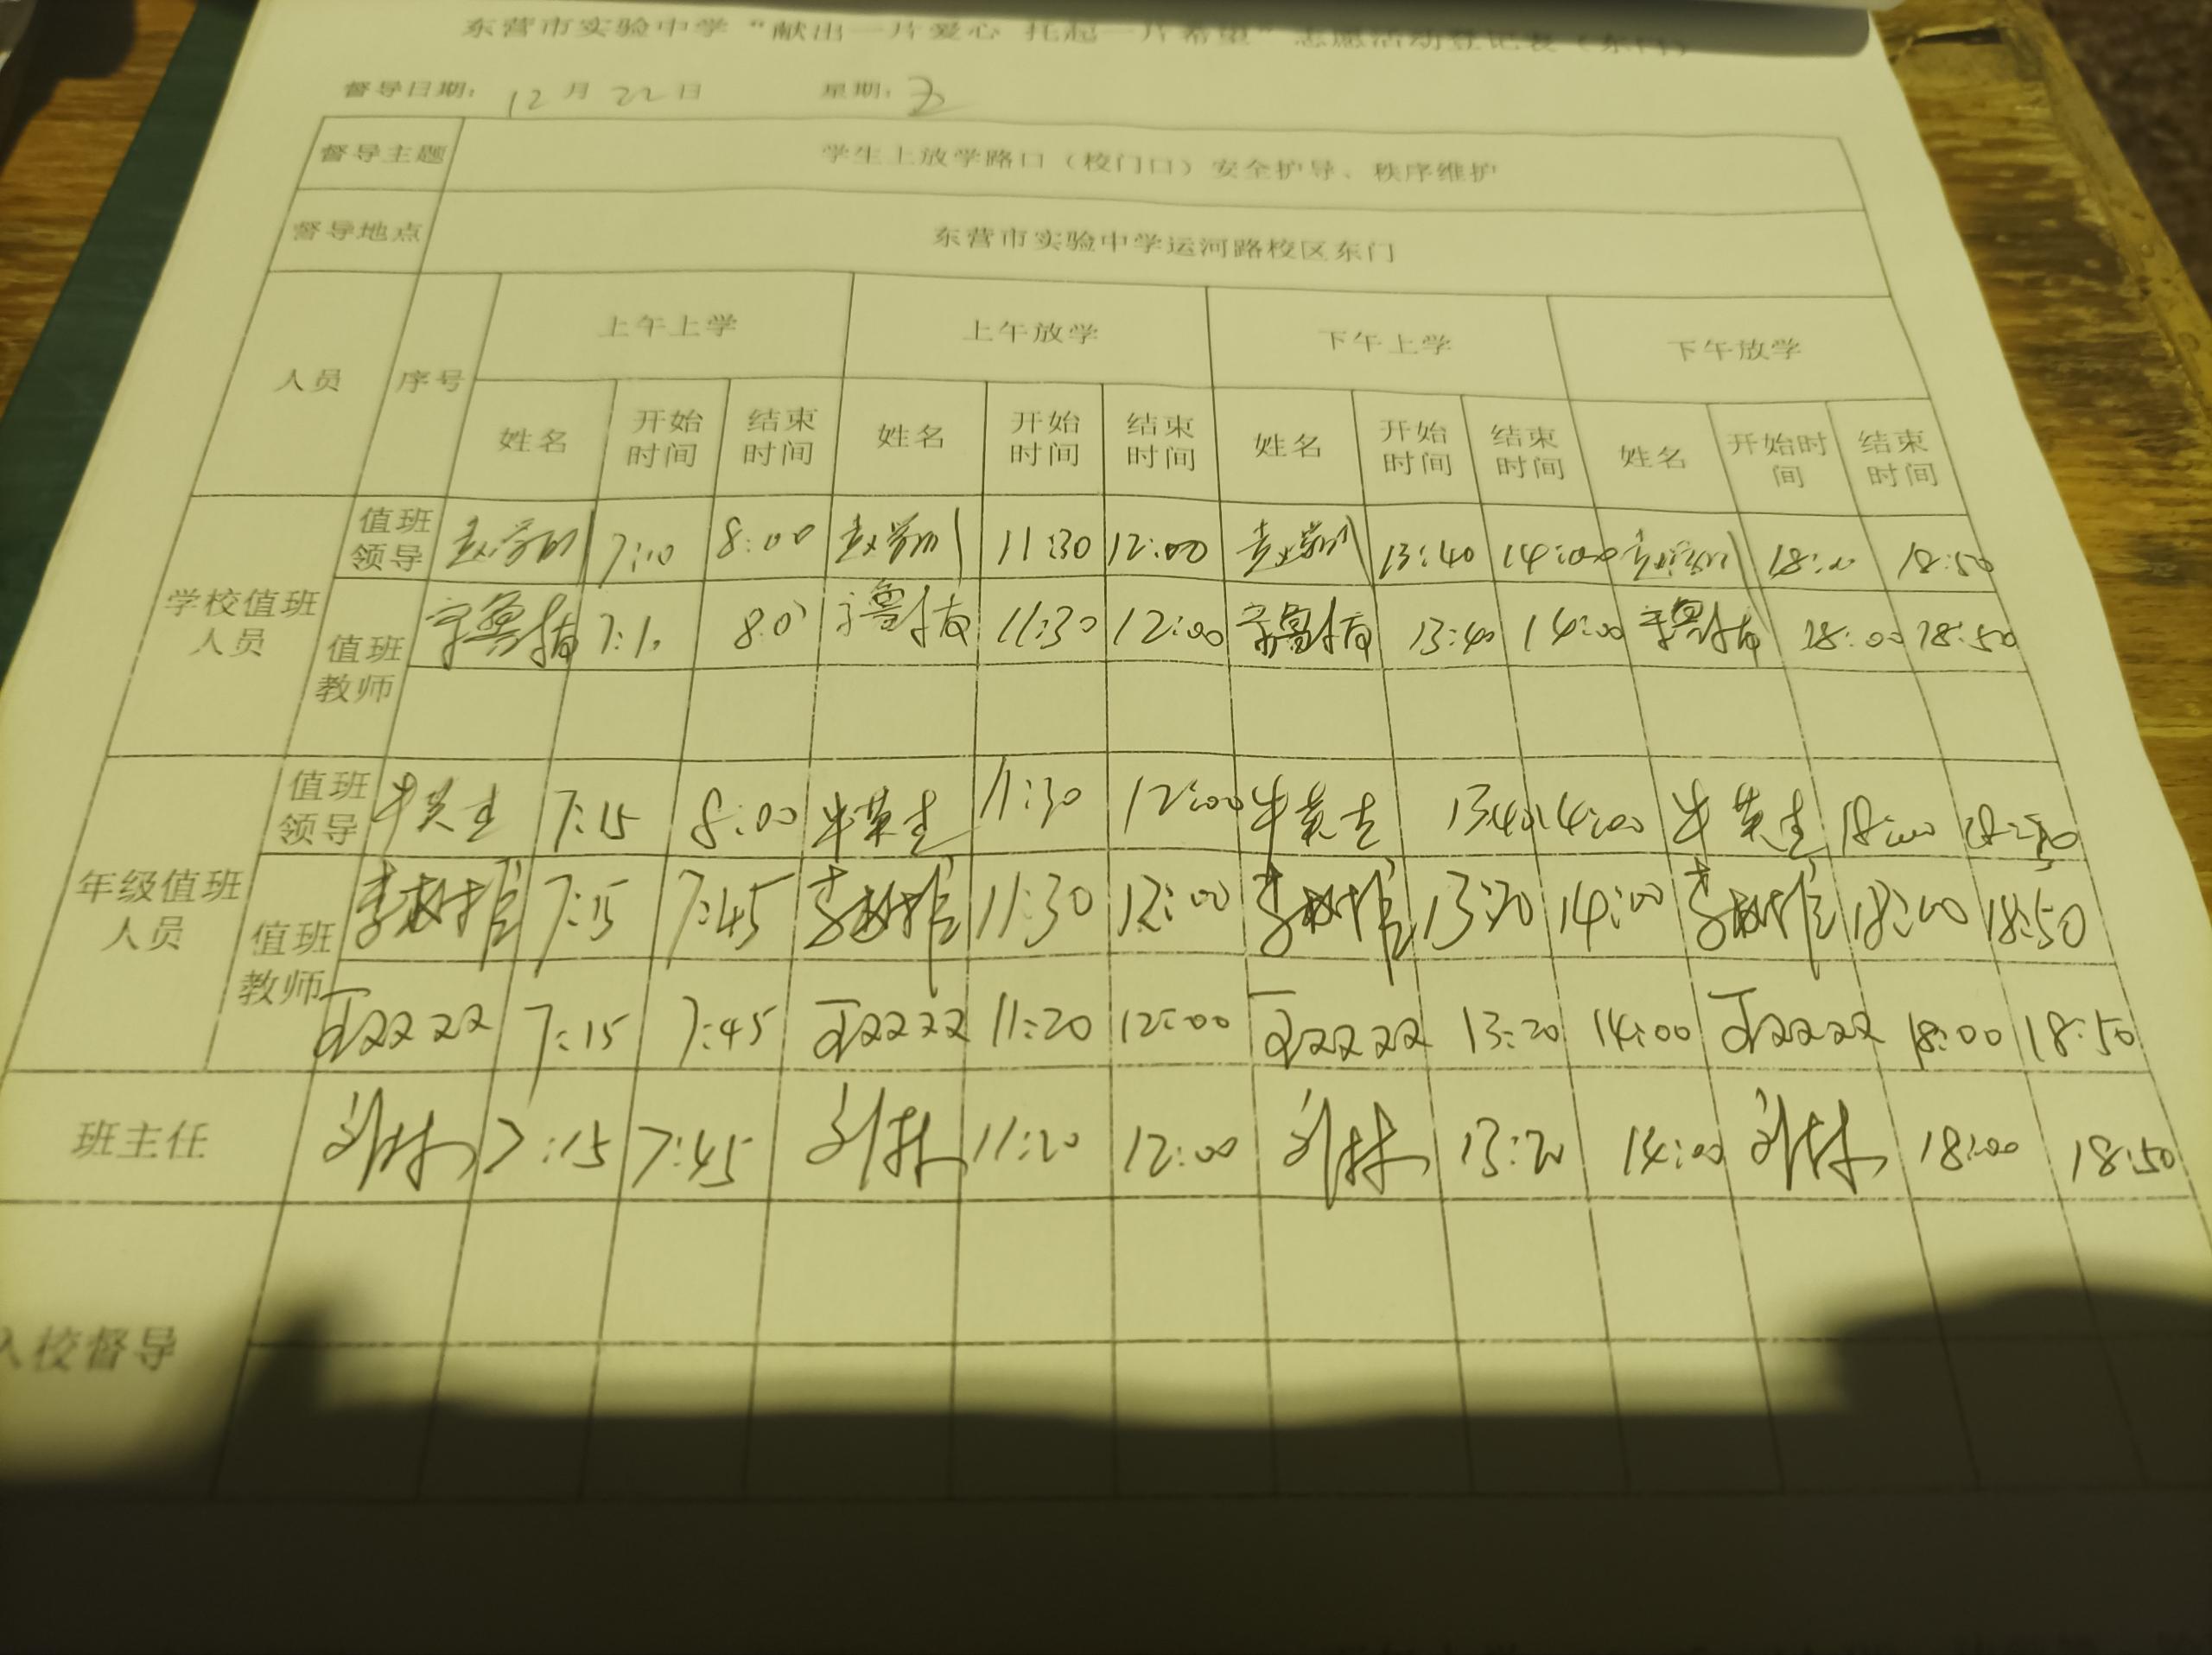 东营市实验中学“献出一片爱心 托起一片希望”志愿活动登记表（东门）
督导日期： 12 月 22 日 星期： 五
督导主题 学生上放学路口（校门口）安全护导、秩序维护
督导地点 东营市实验中学运河路校区东门
人员 序号 上午上学 上午放学 下午上学 下午放学
姓名 开始时间 结束时间 姓名 开始时间 结束时间 姓名 开始时间 结束时间 姓名 开始时间 结束时间
学校值班人员
值班领导 7:10 8:00 11:30 12:00 13:40 14:00 18:00 18:50
值班教师 7:10 8:00 11:30 12:00 13:40 14:00 18:00 18:50
年级值班人员
值班领导 7:15 8:00 11:30 12:00 13:40 14:00 18:00 18:50
值班教师 7:15 7:45 11:30 12:00 13:20 14:00 18:00 18:50
7:15 7:45 11:20 12:00 13:20 14:00 18:00 18:50
班主任 刘林 7:15 7:45 刘林 11:20 12:00 刘林 13:20 14:00 刘林 18:00 18:50
入校督导